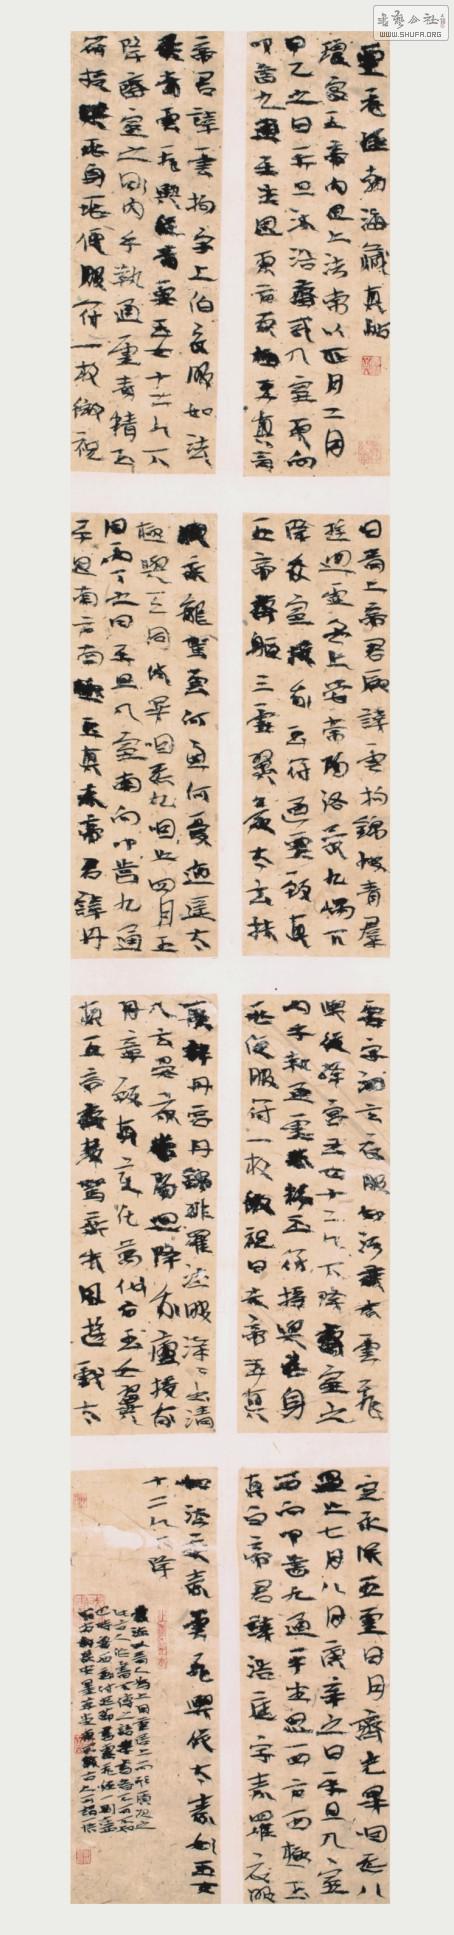 書藝公社
WWW.SHUFA.ORG
靈飛經 渤海藏真帖
瓊宮五帝內思上法常以正月二月
甲乙之日平旦沐浴齋戒入室東向
叩齒九通平坐思東方東極玉真青
帝君諱雲拘字上伯衣服如法
乘青雲飛輿從青要玉女十二人下
降齋室之內手執通靈青精玉
符授與兆身兆便服符一枚微祝
曰青上帝君厥諱雲拘錦帔青羣
遊迴虛無上晏常陽洛景九隅下
降我室授我玉符通靈致真
五帝齊軀三靈翼景太玄扶
輿乘龍駕雲何慮何憂遨遊太
極與天同休畢咽炁九咽止四月五
月丙丁之日平旦入室南向叩齒九通
平思南方南極玉真赤帝君諱丹
容字洞玄衣服如法乘赤雲飛
輿從絳宮玉女十二人下降齋室之
內手執通靈赤精玉符授與兆身
兆便服符一枚微祝曰赤帝玉真
厥諱丹容丹錦緋羅法服洋洋出清
入玄晏景常陽迴降我廬授我
丹章致真變化萬仙合玉女翼
真五帝齊雙駕乘朱鳳遊戲太
空永保五靈日月齊光畢咽炁八
咽止七月八月庚辛之日平旦入室
西向叩齒九通平坐思西方西極玉
真白帝君諱浩庭字素羅衣服
如法乘素雲飛輿從太素玉女
十二人下降